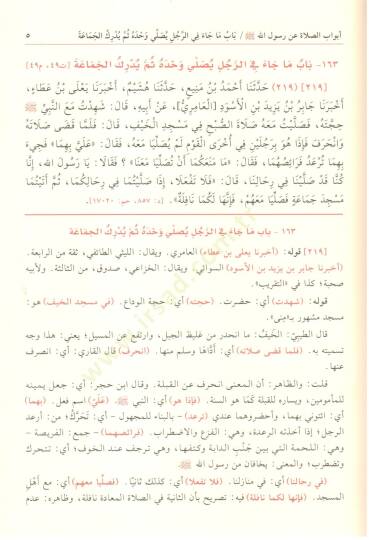 أبواب الصلاة عن رسول الله ﷺ / بَابُ مَا جَاءَ فِي الرَّجُلِ يُصَلِّي وَحْدَهُ ثُمَّ يُدْرِكُ الجَمَاعَةَ ٥
١٦٣- بَابُ مَا جَاءَ فِي الرَّجُلِ يُصَلِّي وَحْدَهُ ثُمَّ يُدْرِكُ الجَمَاعَةَ [ت٤٩، م٤٩]
[٢١٩] (٢١٩) حَدَّثَنَا أَحْمَدُ بْنُ مَنِيعٍ، حَدَّثَنَا هُشَيْمٌ، أَخْبَرَنَا يَعْلَى بْنُ عَطَاءٍ،
أَخْبَرَنَا جَابِرُ بْنُ يَزِيدَ بْنِ الْأَسْوَدِ [العَامِرِيُّ]، عَنْ أَبِيهِ، قَالَ: شَهِدْتُ مَعَ النَّبِيِّ ﷺ
حِجَّتَهُ، فَصَلَّيْتُ مَعَهُ صَلَاةَ الصُّبْحِ فِي مَسْجِدِ الْخَيْفِ، قَالَ: فَلَمَّا قَضَى صَلَاتَهُ
وَانْحَرَفَ فَإِذَا هُوَ بِرَجُلَيْنِ فِي أُخْرَى الْقَوْمِ لَمْ يُصَلِّيَا مَعَهُ، فَقَالَ: «عَلَيَّ بِهِمَا» فَجِيءَ
بِهِمَا تُرْعَدُ فَرَائِصُهُمَا، فَقَالَ: «مَا مَنَعَكُمَا أَنْ تُصَلِّيَا مَعَنَا» ؟ فَقَالَا: يَا رَسُولَ الله، إِنَّا
كُنَّا قَدْ صَلَّيْنَا فِي رِحَالِنَا، قَالَ: «فَلَا تَفْعَلَا، إِذَا صَلَّيْتُمَا فِي رِحَالِكُمَا، ثُمَّ أَتَيْتُمَا
مَسْجِدَ جَمَاعَةٍ فَصَلِّيَا مَعَهُمْ، فَإِنَّهَا لَكُمَا نَافِلَةٌ». [ن: ٨٥٧، حم: ١٧٠٢٠].
١٦٣ - باب مَا جَاءَ فِي الرَّجُلِ يُصَلِّي وَحْدَهُ ثُمَّ يُدْرِكُ الجَمَاعَةَ
[٢١٩] قوله: (أخبرنا يعلى بن عطاء) العامري. ويقال: الليثي الطائفي، ثقة من الرابعة.
(أخبرنا جابر بن يزيد بن الأسود) السوائي. ويقال: الخزاعي، صدوق، من الثالثة. ولأبيه
صحبة، كذا في «التقريب».
قوله: (شهدت) أي: حضرت. (حجته) أي: حجة الوداع. (في مسجد الخيف) هو:
مسجد مشهور بـ«منى».
قال الطيبيّ: الخَيفُ: ما انحدر من غليظ الجبل، وارتفع عن المسيل؛ يعني: هذا وجه
تسميته به. (فلما قضى صلاته) أي: أدَّاهَا وسلم منها. (انحرف) قال القاري: أي: انصرف
عنها.
قلت: والظاهر: أن المعنى انحرف عن القبلة. وقال ابن حجر: أي: جعل يمينه
للمأمومين، ويساره للقبلة كمَا هو السنة. (فإذا هو) أي: النبي ﷺ. (عَلَيَّ) اسم فعل. (بهما)
أي: ائتوني بهما، وأحضروهما عندي (ترعد) - بالبناء للمجهول - أي: تَحَرَّكُ؛ من: أرعد
الرجل؛ إذا أخذته الرعدة، وهي: الفزع والاضطراب. (فرائصهما) - جمع: الفريصة -
وهي: اللحمة التي بين جَنْبِ الدابة وكتفها، وهي ترجف عند الخوف؛ أي: تتحرك
وتضطرب؛ والمعنى: يخافان من رسول الله ﷺ.
(في رحالنا) أي: في منازلنا. (فلا تفعلا) أي: كذلك ثانيًا. (فصليا معهم) أي: مع أَهْلِ
المسجد. (فإنها لكما نافلة) فيه: تصريح بأن الثانية في الصلاة المعادة نافلة، وظاهره: عدم